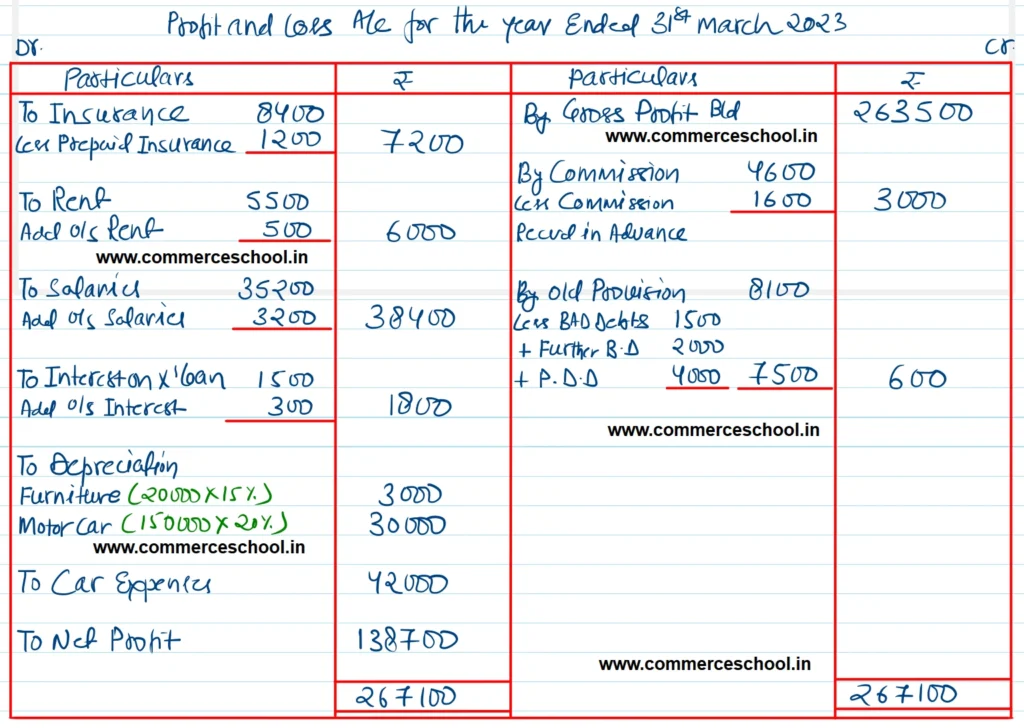 Profit and Loss A/c for the year Ended 31st March 2023
Dr. Cr.
Particulars ₹ Particulars ₹
To Insurance 8400
Less Prepaid Insurance 1200 7200
To Rent 5500
Add o/s Rent 500 6000
www.commerceschool.in
To Salaries 35200
Add o/s Salaries 3200 38400
To Interest on X'loan 1500
Add o/s Interest 300 1800
To Depreciation
Furniture (20000 x 15%) 3000
Motor Car (150000 x 20%) 30000
www.commerceschool.in
To Car Expenses 42000
To Net Profit 138700
267100
By Gross Profit B/d 263500
www.commerceschool.in
By Commission 4600
Less Commission 1600 3000
Recevd in Advance
By Old Provision 8100
Less BAD Debts 1500
+ Further B.D 2000
+ P.D.D 4000 7500 600
www.commerceschool.in
www.commerceschool.in
267100